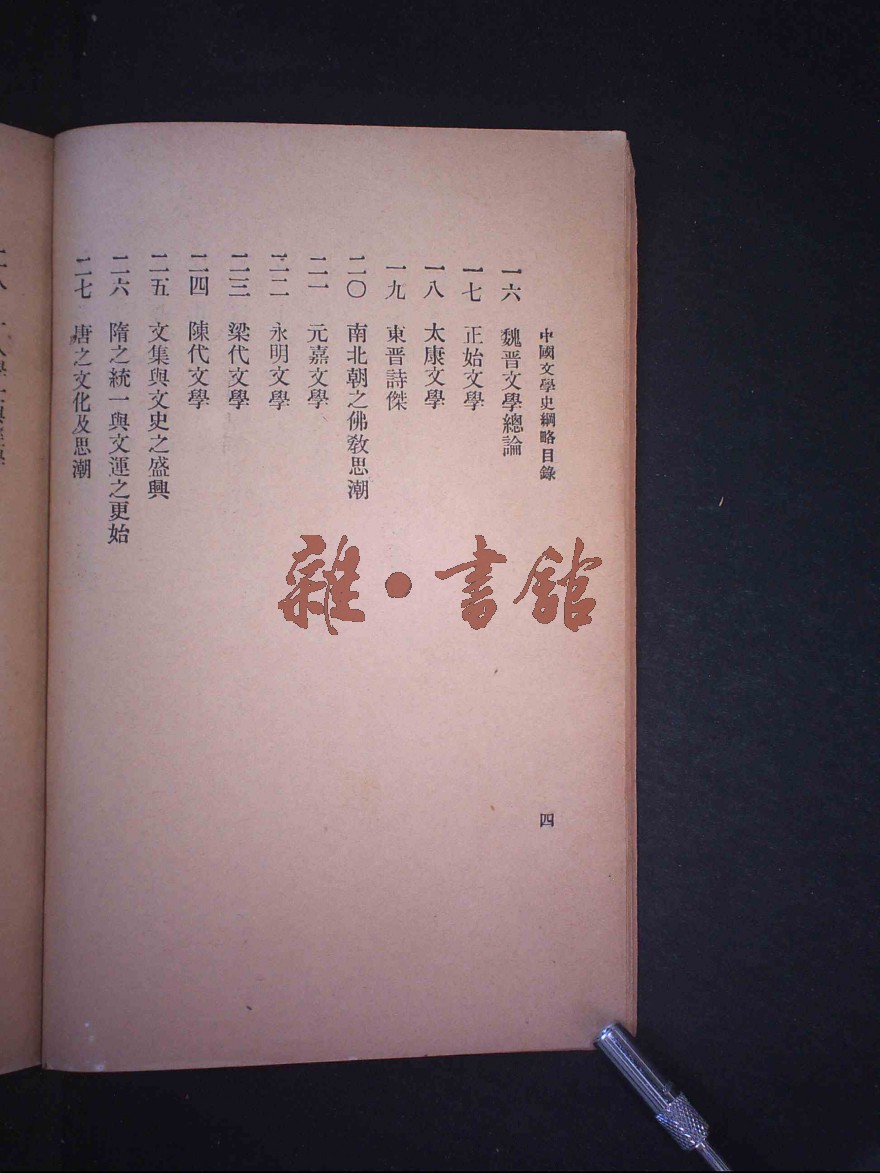 中國文學史綱略目錄
四
一六 魏晋文學總論
一七 正始文學
一八 太康文學
一九 東晋詩傑
二〇 南北朝之佛敎思潮
二一 元嘉文學
二二 永明文學
二三 梁代文學
二四 陳代文學
二五 文集與文史之盛興
二六 隋之統一與文運之更始
二七 唐之文化及思潮
雜·書館